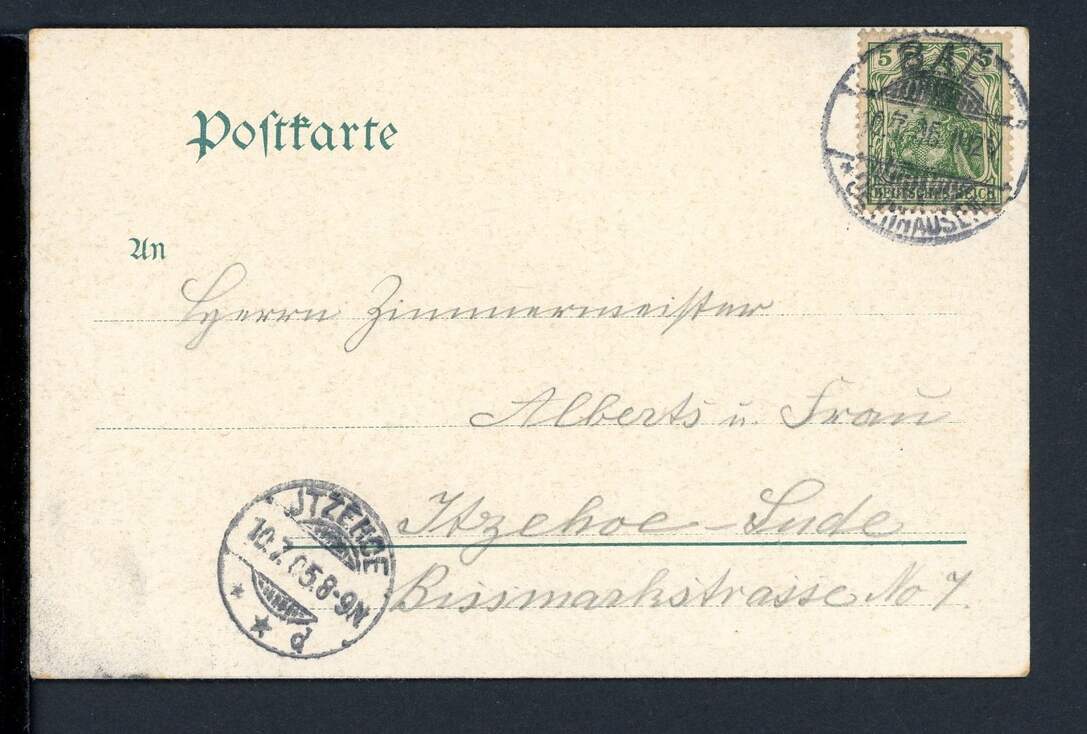 Postkarte
5 5
BAD
DEUTSCHES REICH
An
Herrn Zimmermeister
Alberts u. Frau
Itzehoe-Sude
Bissmarkstrasse No 7.
JTZEHOE
10.7.05.8-9N
* * d